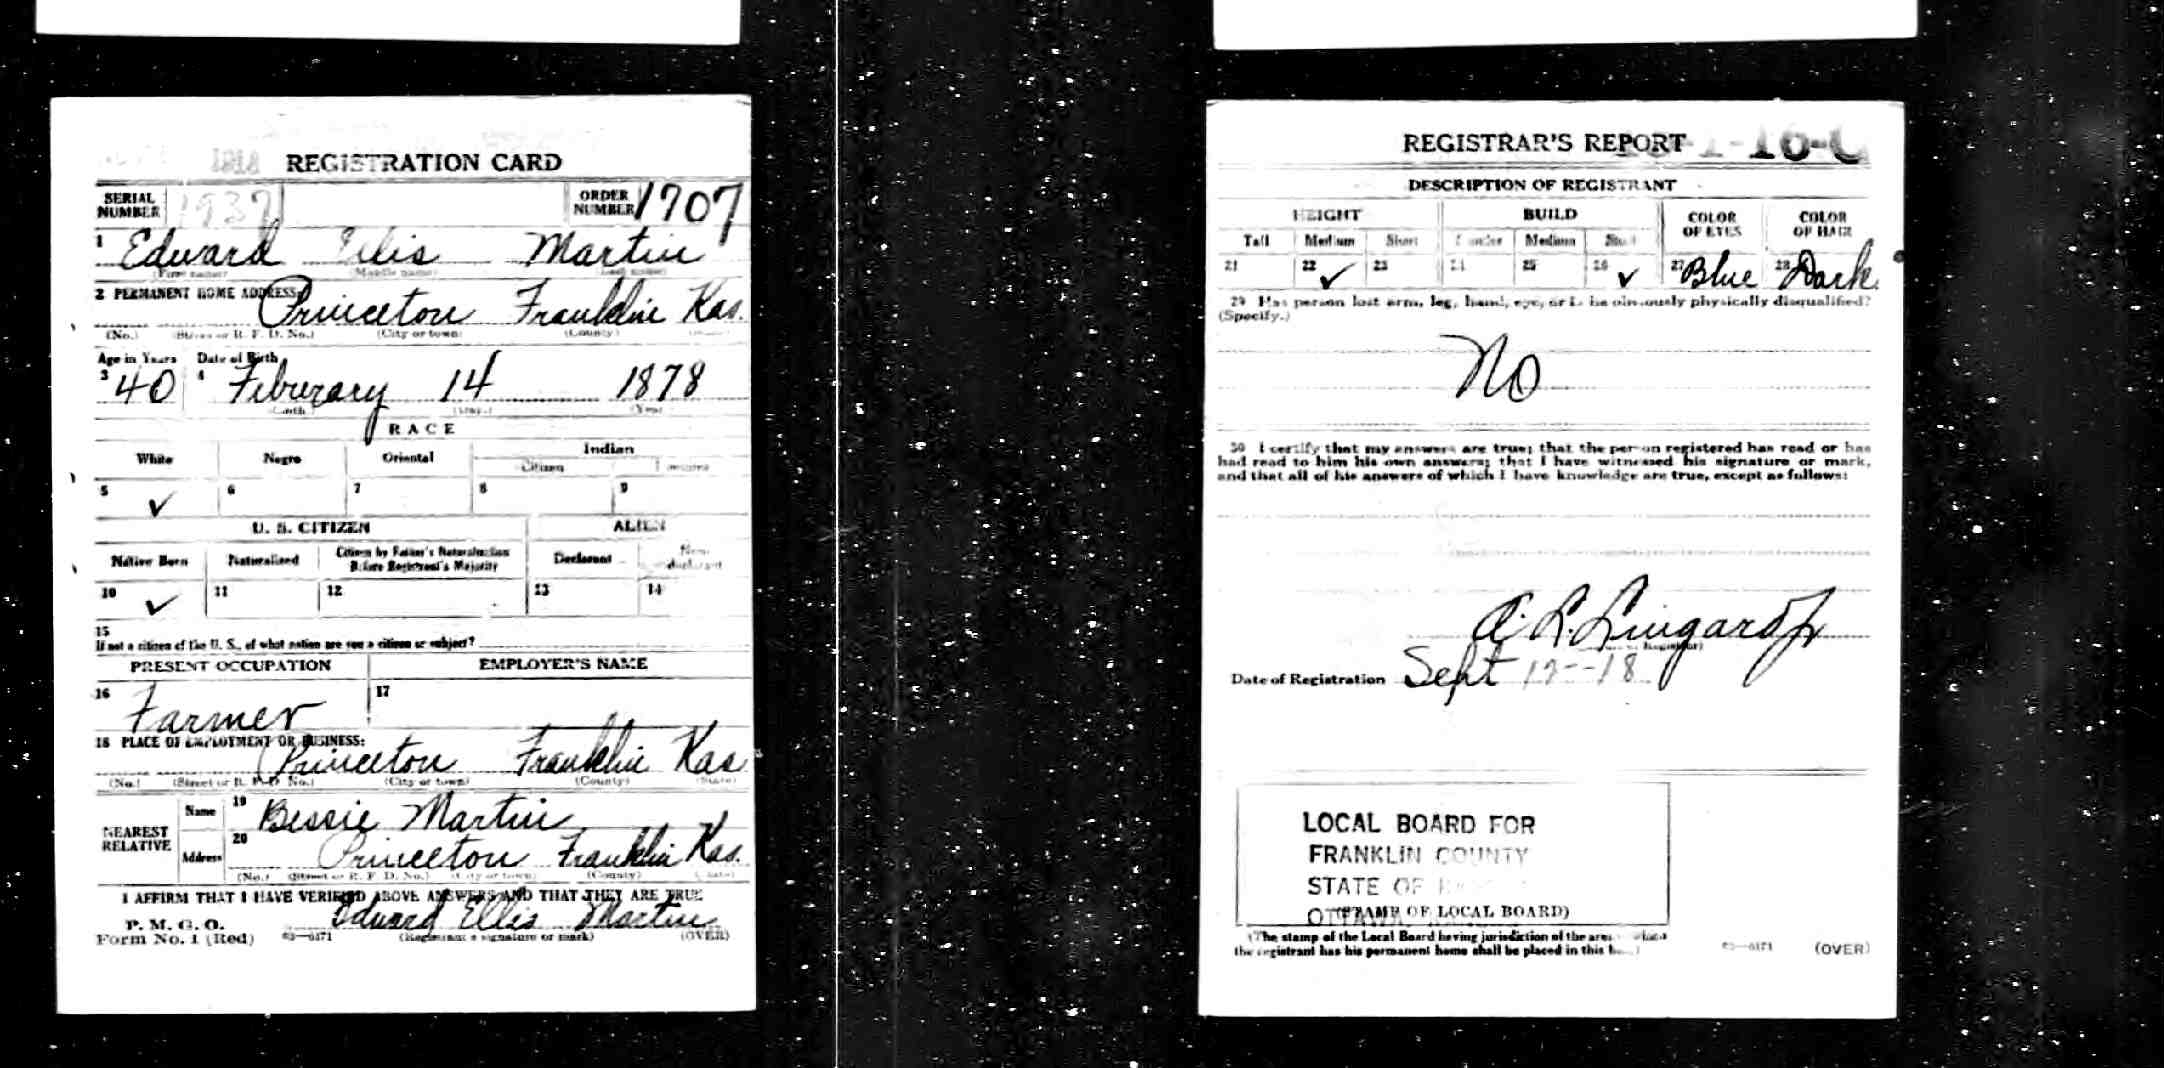 REGISTRATION CARD
SERIAL NUMBER 1937 ORDER NUMBER 1707
1 Edward Ellis Martin
(First name) (Middle name) (Last name)
2 PERMANENT HOME ADDRESS:
Princeton Franklin Kas.
(No.) (Street or R. F. D. No.) (City or town) (County)
Age in Years Date of Birth
3 40 4 Feburary 14 1878
(Month) (Day) (Year)
RACE
White Negro Oriental Indian
Citizen
5 ✓ 6 7 8 9
U. S. CITIZEN ALIEN
Native Born Naturalized Citizen by Father's Naturalization Before Registrant's Majority Declarant Non-declarant
10 ✓ 11 12 13 14
15
If not a citizen of the U. S., of what nation are you a citizen or subject?
PRESENT OCCUPATION EMPLOYER'S NAME
16 Farmer 17
18 PLACE OF EMPLOYMENT OR BUSINESS:
Princeton Franklin Kas
(No.) (Street or R. F. D. No.) (City or town) (County) (State)
NEAREST RELATIVE Name 19 Bessie Martin
Address 20 Princeton Franklin Kas.
(No.) (Street or R. F. D. No.) (City or town) (County) (State)
I AFFIRM THAT I HAVE VERIFIED ABOVE ANSWERS AND THAT THEY ARE TRUE
P. M. G. O. Edward Ellis Martin
Form No. 1 (Red) 03—6171 (Registrant's signature or mark) (OVER)
REGISTRAR'S REPORT
DESCRIPTION OF REGISTRANT
HEIGHT BUILD COLOR OF EYES COLOR OF HAIR
Tall Medium Short Slender Medium Stout
21 22 ✓ 23 24 25 26 ✓ 27 Blue 28 Dark
29 Has person lost arm, leg, hand, eye, or is he obviously physically disqualified?
(Specify.)
No
30 I certify that my answers are true; that the person registered has read or has
had read to him his own answers; that I have witnessed his signature or mark,
and that all of his answers of which I have knowledge are true, except as follows:
(Registrar)
Date of Registration Sept 12--18
LOCAL BOARD FOR
FRANKLIN COUNTY
STATE OF
OTTAWA
(STAMP OF LOCAL BOARD)
(The stamp of the Local Board having jurisdiction of the area
the registrant has his permanent home shall be placed in this
03—6171 (OVER)